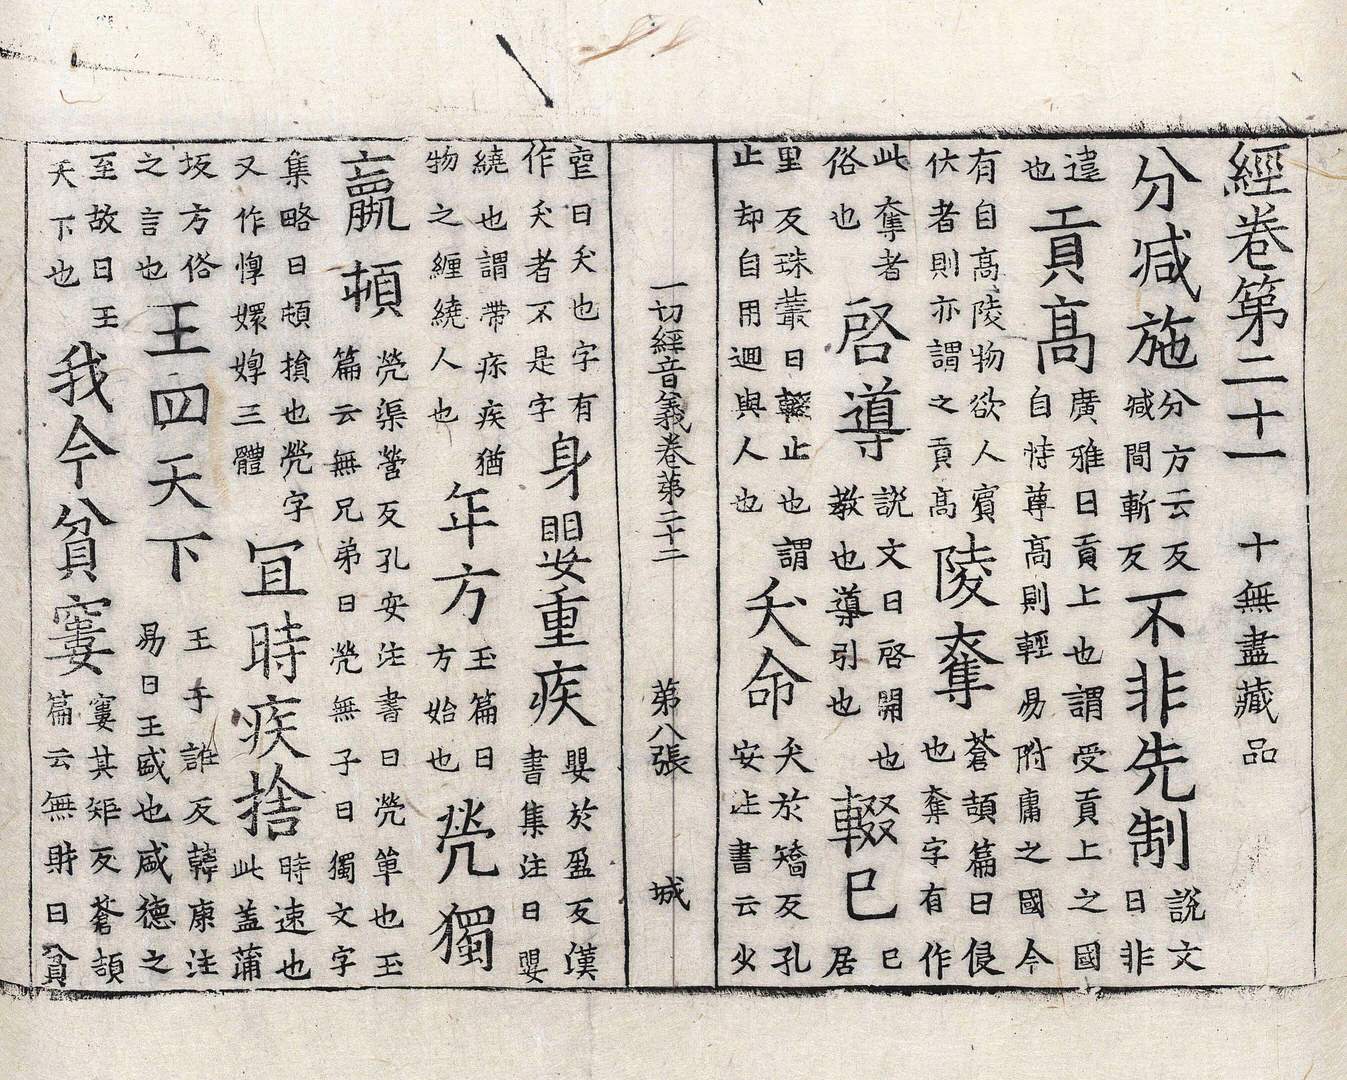 經卷第二十一 十無盡藏品
分減施 分方云反 減間斬反 不非先制 說文 曰非
違 也 貢高 廣雅曰貢上也謂受貢上之國 自恃尊高則輕易附庸之國今
有自高陵物欲人賓 伏者則亦謂之貢高 陵奪 蒼頡篇曰侵 也奪字有作
此奪者 俗也 啓導 說文曰啓開也 教也導引也 輟巳 巳 居
里反珠叢曰輟止也謂 止却自用迴與人也 夭命 夭於矯反孔 安注書云少
一切經音義卷第二十二 第八張 城
曰夭也字有 作夭者不是字 身嬰重疾 嬰於盈反漢 書集注曰嬰
繞也謂帶疹疾猶 物之纏繞人也 年方 玉篇曰 方始也 煢獨
羸頓 煢渠營反孔安注書曰煢單也玉 篇云無兄弟曰煢無子曰獨文字
集略曰頓損也煢字 又作惸嬛婷三體 宜時疾捨 時速也 此蓋蒲
坂方俗 之言也 王四天下 王于誰反韓康注 易曰王盛也盛德之
至故曰王 天下也 我今貧窶 窶其矩反蒼頡 篇云無財曰貧